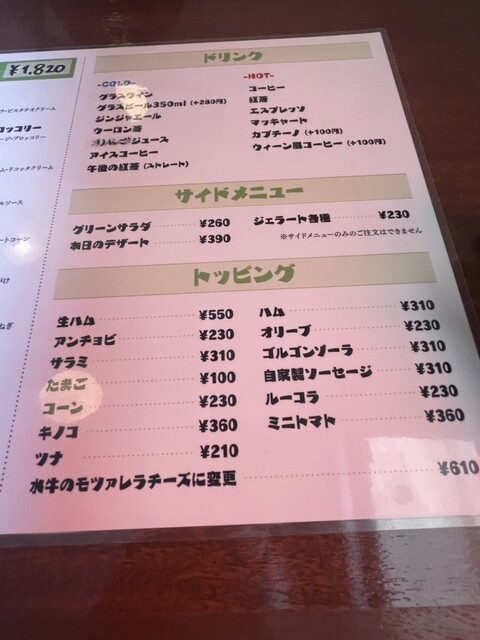 ¥1,820
ラ・ピスタチオクリーム
ロッコリー
ージ・ブロッコリー
ム・リコッタクリーム
ルソース
ートコーン
ねぎ
ドリンク
-COLD-
グラスワイン
グラスビール350ml (+280円)
ジンジャエール
ウーロン茶
りんごジュース
アイスコーヒー
午後の紅茶 (ストレート)
-HOT-
コーヒー
紅茶
エスプレッソ
マッキャート
カプチーノ (+100円)
ウィーン風コーヒー (+100円)
サイドメニュー
グリーンサラダ ¥260
本日のデザート ¥390
ジェラート各種 ¥230
※サイドメニューのみのご注文はできません
トッピング
生ハム ¥550
アンチョビ ¥230
サラミ ¥310
たまご ¥100
コーン ¥230
キノコ ¥360
ツナ ¥210
水牛のモツァレラチーズに変更 ¥610
ハム ¥310
オリーブ ¥230
ゴルゴンゾーラ ¥310
自家製ソーセージ ¥310
ルーコラ ¥230
ミニトマト ¥360